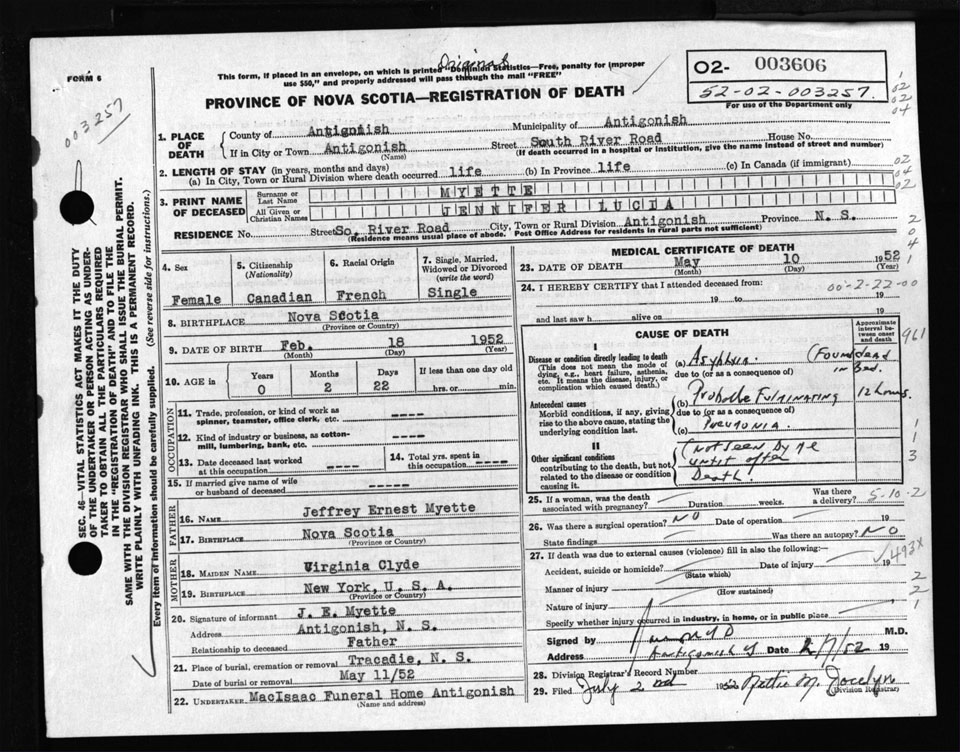 FORM 6
Original
This form, if placed in an envelope, on which is printed "Dominion Statistics—Free, penalty for improper
use $50," and properly addressed will pass through the mail "FREE"
PROVINCE OF NOVA SCOTIA—REGISTRATION OF DEATH
02- 003606
52-02-003257.
For use of the Department only
003257
1. PLACE OF DEATH
County of Antigonish Municipality of Antigonish
If in City or Town Antigonish Street South River Road House No.
(Name) (If death occurred in a hospital or institution, give the name instead of street and number)
2. LENGTH OF STAY (in years, months and days)
(a) In City, Town or Rural Division where death occurred life (b) In Province life (c) In Canada (if immigrant)
3. PRINT NAME OF DECEASED
Surname or Last Name MYETTE
All Given or Christian Names JENNIFER LUCIA
RESIDENCE No. Street So. River Road City, Town or Rural Division Antigonish Province N. S.
(Residence means usual place of abode. Post Office Address for residents in rural parts not sufficient)
4. Sex Female
5. Citizenship (Nationality) Canadian
6. Racial Origin French
7. Single, Married, Widowed or Divorced (write the word) Single
8. BIRTHPLACE Nova Scotia
(Province or Country)
9. DATE OF BIRTH Feb. 18 1952
(Month) (Day) (Year)
10. AGE in Years 0 Months 2 Days 22 If less than one day old hrs. or min.
OCCUPATION
11. Trade, profession, or kind of work as spinner, teamster, office clerk, etc. ----
12. Kind of industry or business, as cotton-mill, lumbering, bank, etc. ----
13. Date deceased last worked at this occupation ----
14. Total yrs. spent in this occupation ----
15. If married give name of wife or husband of deceased -----
FATHER
16. NAME Jeffrey Ernest Myette
17. BIRTHPLACE Nova Scotia
(Province or Country)
MOTHER
18. MAIDEN NAME Virginia Clyde
19. BIRTHPLACE New York, U. S. A.
(Province or Country)
20. Signature of informant J. E. Myette
Address Antigonish, N. S.
Relationship to deceased Father
21. Place of burial, cremation or removal Tracadie, N. S.
Date of burial or removal May 11/52
22. UNDERTAKER MacIsaac Funeral Home Antigonish
(Name and address)
MEDICAL CERTIFICATE OF DEATH
23. DATE OF DEATH May 10 1952
(Month) (Day) (Year)
24. I HEREBY CERTIFY that I attended deceased from:
00-2-22-00
19 to 19
and last saw h alive on 19
CAUSE OF DEATH
Approximate interval between onset and death
I
Disease or condition directly leading to death
(This does not mean the mode of dying, e.g., heart failure, asthenia, etc. It means the disease, injury, or complication which caused death.)
(a) (Found dead in Bed.
due to (or as a consequence of)
Antecedent causes
Morbid conditions, if any, giving rise to the above cause, stating the underlying condition last.
(b) Probable Fulminating 12 hours.
due to (or as a consequence of)
(c) Pneumonia.
II
Other significant conditions
contributing to the death, but not related to the disease or condition causing it.
(Not seen by me
until after
Death.
961
25. If a woman, was the death associated with pregnancy? Duration weeks. Was there a delivery?
5-10-2
26. Was there a surgical operation? NO Date of operation 19
State findings Was there an autopsy? NO
27. If death was due to external causes (violence) fill in also the following:—
493X
Accident, suicide or homicide? Date of injury 19
(State which)
Manner of injury
(How sustained)
Nature of injury
Specify whether injury occurred in industry, in home, or in public place
Signed by M.D.
Address Antigonish Date /7/52 19
28. Division Registrar's Record Number
29. Filed July 2nd 1952 Nettie M. Jocelyn
(Division Registrar)
SEC. 46—VITAL STATISTICS ACT MAKES IT THE DUTY
OF THE UNDERTAKER OR PERSON ACTING AS UNDER-
TAKER TO OBTAIN ALL THE PARTICULARS REQUIRED
IN THE "REGISTRATION OF DEATH" AND TO FILE THE
SAME WITH THE DIVISION REGISTRAR WHO SHALL ISSUE THE BURIAL PERMIT.
WRITE PLAINLY WITH UNFADING INK. THIS IS A PERMANENT RECORD.
Every item of information should be carefully supplied. (See reverse side for instructions.)